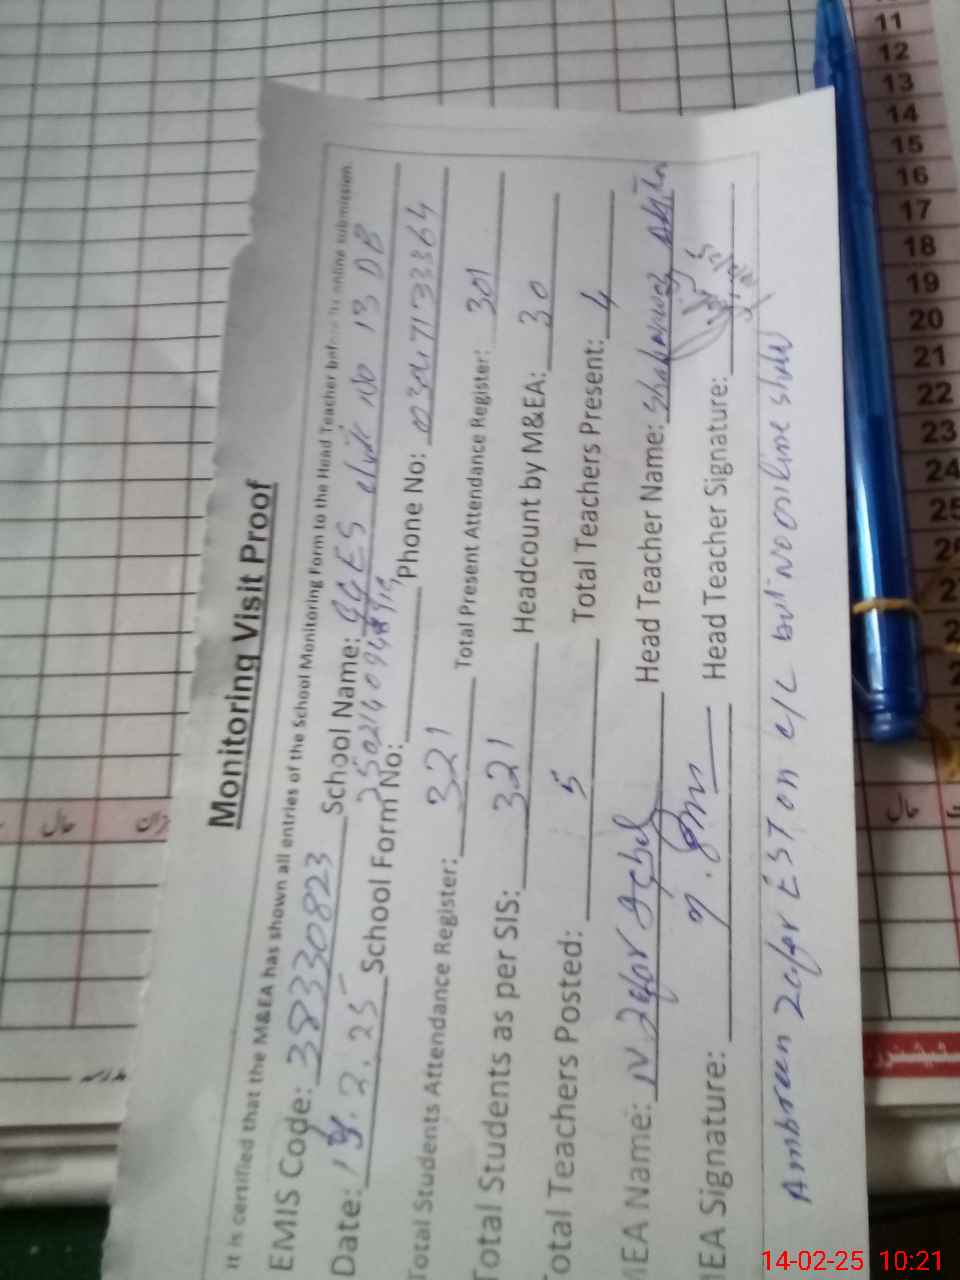 Monitoring Visit Proof
It is certified that the M&EA has shown all entries of the School Monitoring Form to the Head Teacher before its online submission.
EMIS Code: 38330823 School Name: GGES chak No 13 DB
Date: 14.2.25 School Form No: Phone No:
Total Students Attendance Register: 321 Total Present Attendance Register: 301
Total Students as per SIS: 321 Headcount by M&EA: 30
Total Teachers Posted: 5 Total Teachers Present: 4
MEA Name: Head Teacher Name:
MEA Signature: Head Teacher Signature:
Ambreen Zafar EST on c/L but No online show
11
12
13
14
15
16
17
18
19
20
21
22
23
24
25
حال
حال
14-02-25 10:21